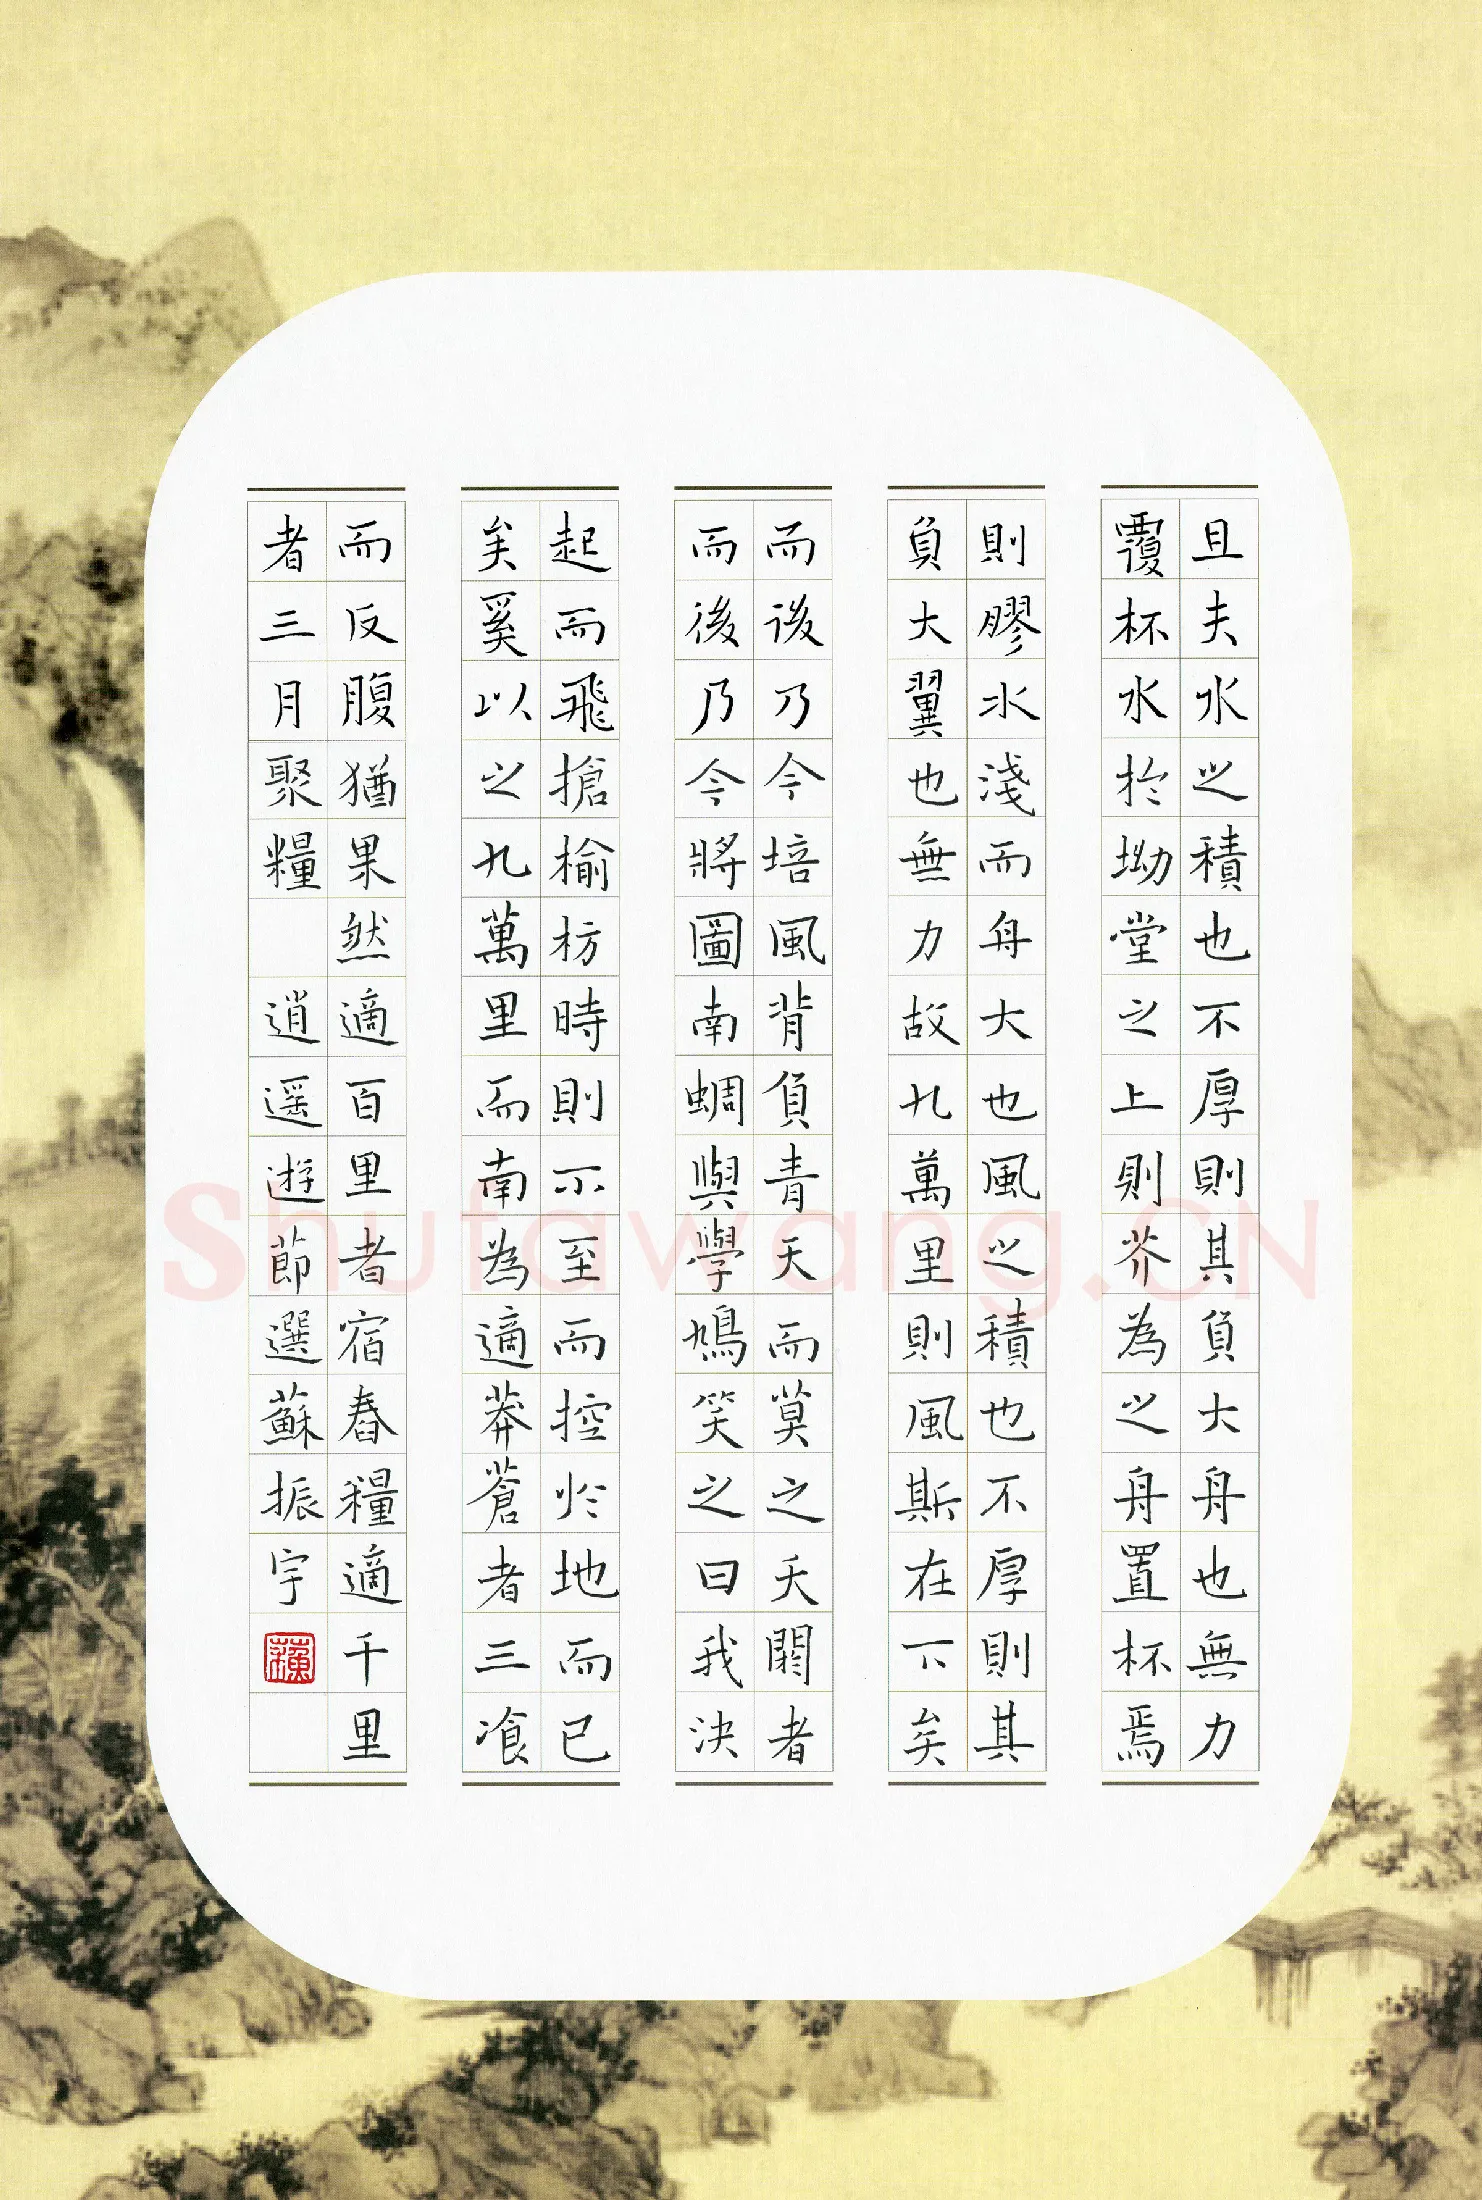 且夫水之積也不厚則其負大舟也無力
覆杯水於坳堂之上則芥為之舟置杯焉
則膠水淺而舟大也風之積也不厚則其
負大翼也無力故九萬里則風斯在下矣
而後乃今培風背負青天而莫之夭閼者
而後乃今將圖南蜩與學鳩笑之曰我決
起而飛搶榆枋時則不至而控於地而已
矣奚以之九萬里而南為適莽蒼者三飡
而反腹猶果然適百里者宿舂糧適千里
者三月聚糧 逍遥遊節選蘇振宇
Shufawang.CN